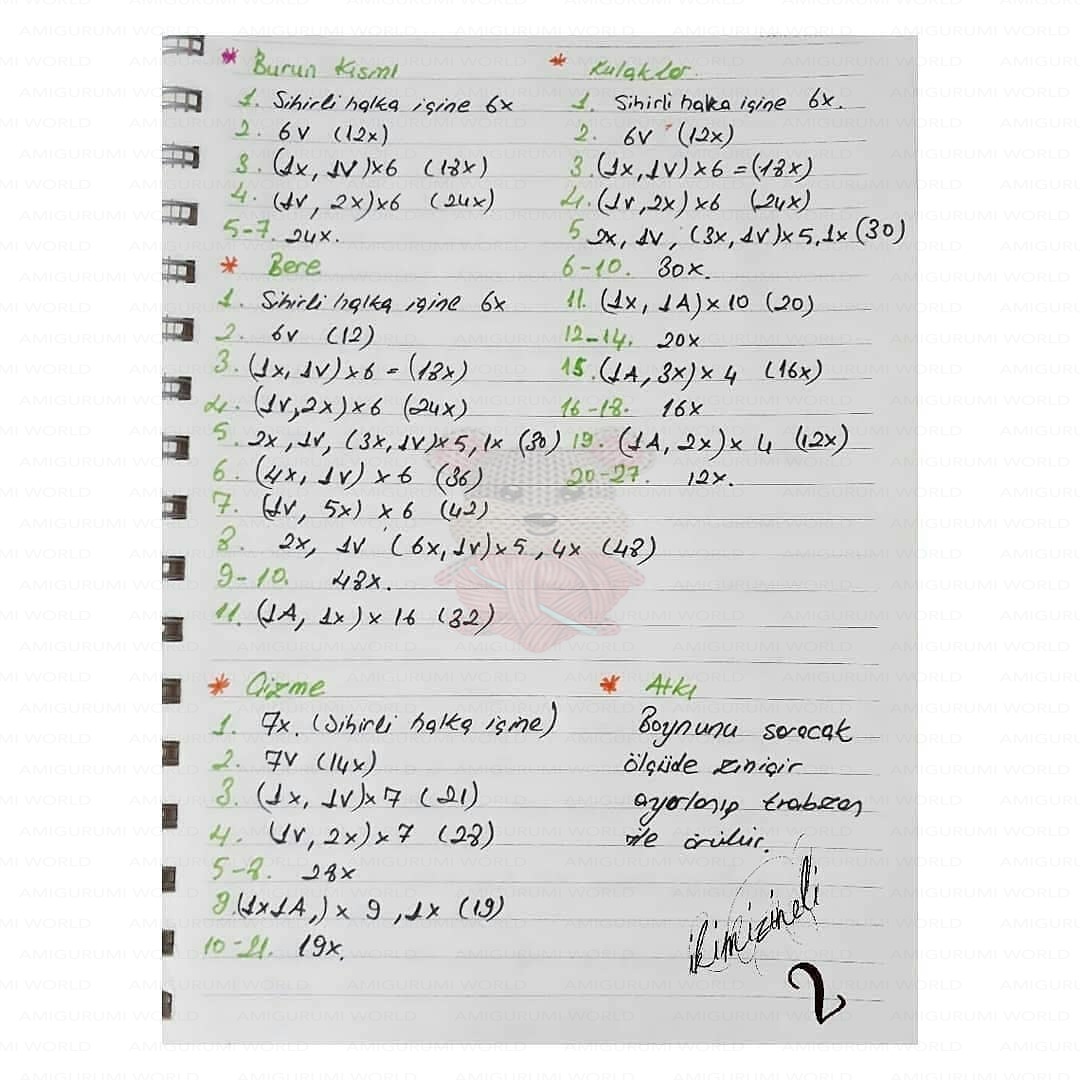 * Burun Kısmı
1. Sihirli halka içine 6x
2. 6V (12x)
3. (1x, 1V)x6 (18x)
4. (1V, 2x)x6 (24x)
5-7 24x.
* Bere
1. Sihirli halka içine 6x
2. 6V (12)
3. (1x, 1V)x6 = (18x)
4. (1V, 2x)x6 (24x)
5. 2x, 1V, (3x, 1V)x5, 1x (30)
6. (4x, 1V) x 6 (36)
7. (1V, 5x) x 6 (42)
8. 2x, 1V (6x, 1V)x5, 4x (48)
9-10. 48x.
11. (1A, 1x) x 16 (32)
* Kulaklar.
1. Sihirli halka içine 6x.
2. 6V (12x)
3. (1x, 1V)x6 = (18x)
4. (1V, 2x)x6 (24x)
5 2x, 1V, (3x, 1V)x5, 1x (30)
6-10. 30x.
11. (1x, 1A)x 10 (20)
12-14. 20x
15. (1A, 3x)x 4 (16x)
16-18. 16x
19. (1A, 2x)x 4 (12x)
20-27. 12x.
* Çizme
1. 7x. (Sihirli halka içine)
2. 7V (14x)
3. (1x, 1V)x 7 (21)
4. (1V, 2x)x 7 (28)
5-8. 28x
9 (1x1A,) x 9, 1x (19)
10-21. 19x.
* Atkı
Boynunu saracak
ölçüde zincir
ayarlanıp trabzan
ile örülür.
ikimizineli
2
AMIGURUMI WORLD